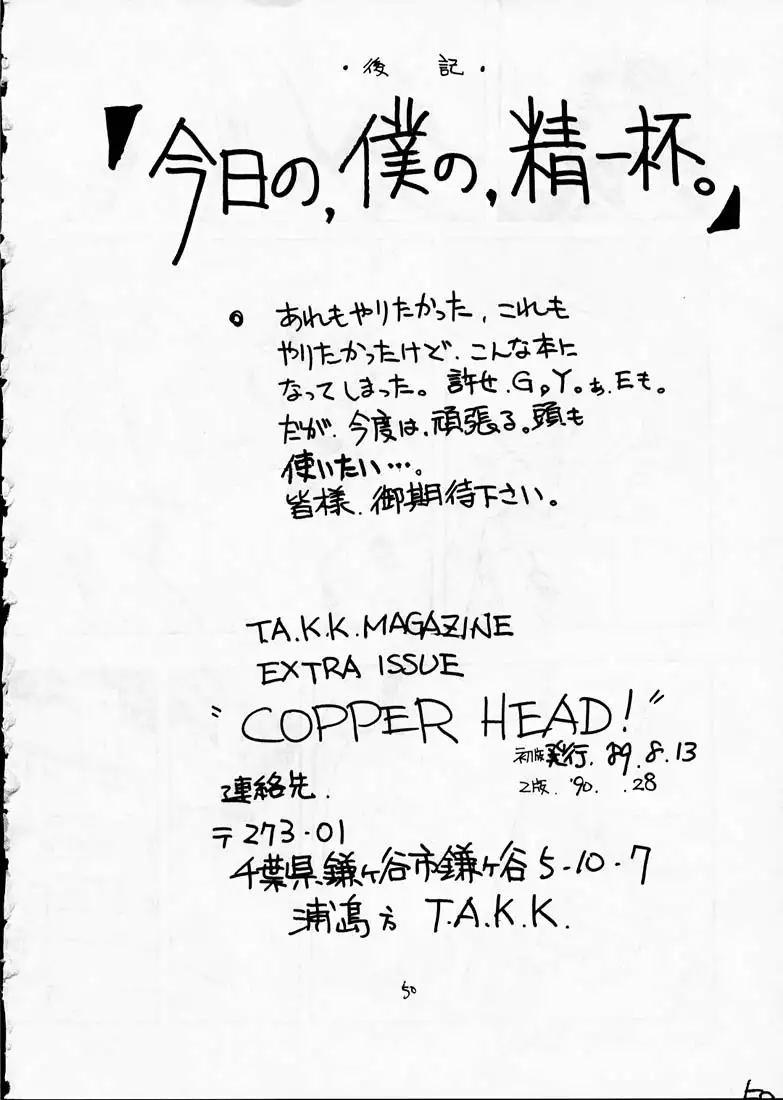 ・後 記・
『今日の,僕の,精一杯。』
◦ あれもやりたかった、これも
やりたかったけど、こんな本に
なってしまった。許せ、G。Y。ぁ、Eも。
だが、今度は、頑張る。頭も
使いたい…。
皆様、御期待下さい。
T.A.K.K. MAGAZINE
EXTRA ISSUE
"COPPER HEAD!"
初版発行. 89. 8. 13
2版. '90. .28
連絡先.
〒273-01
千葉県鎌ヶ谷市鎌ヶ谷5-10-7
浦島方 T.A.K.K.
50
50